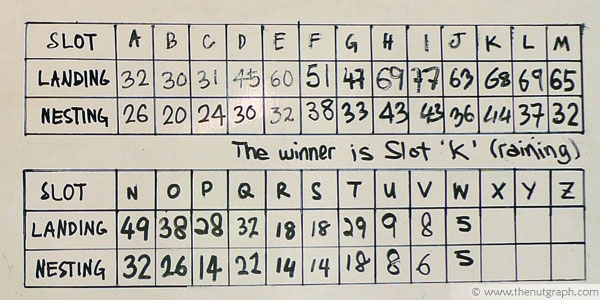 SLOT A B C D E F G H I J K L M
LANDING 32 30 31 45 60 51 47 69 77 63 68 69 65
NESTING 26 20 24 30 32 38 33 43 43 36 44 37 32
The winner is Slot 'K' (raining)
SLOT N O P Q R S T U V W X Y Z
LANDING 49 38 28 32 18 18 29 9 8 5
NESTING 32 26 14 22 14 14 18 8 6 5
© www.thenutgraph.com